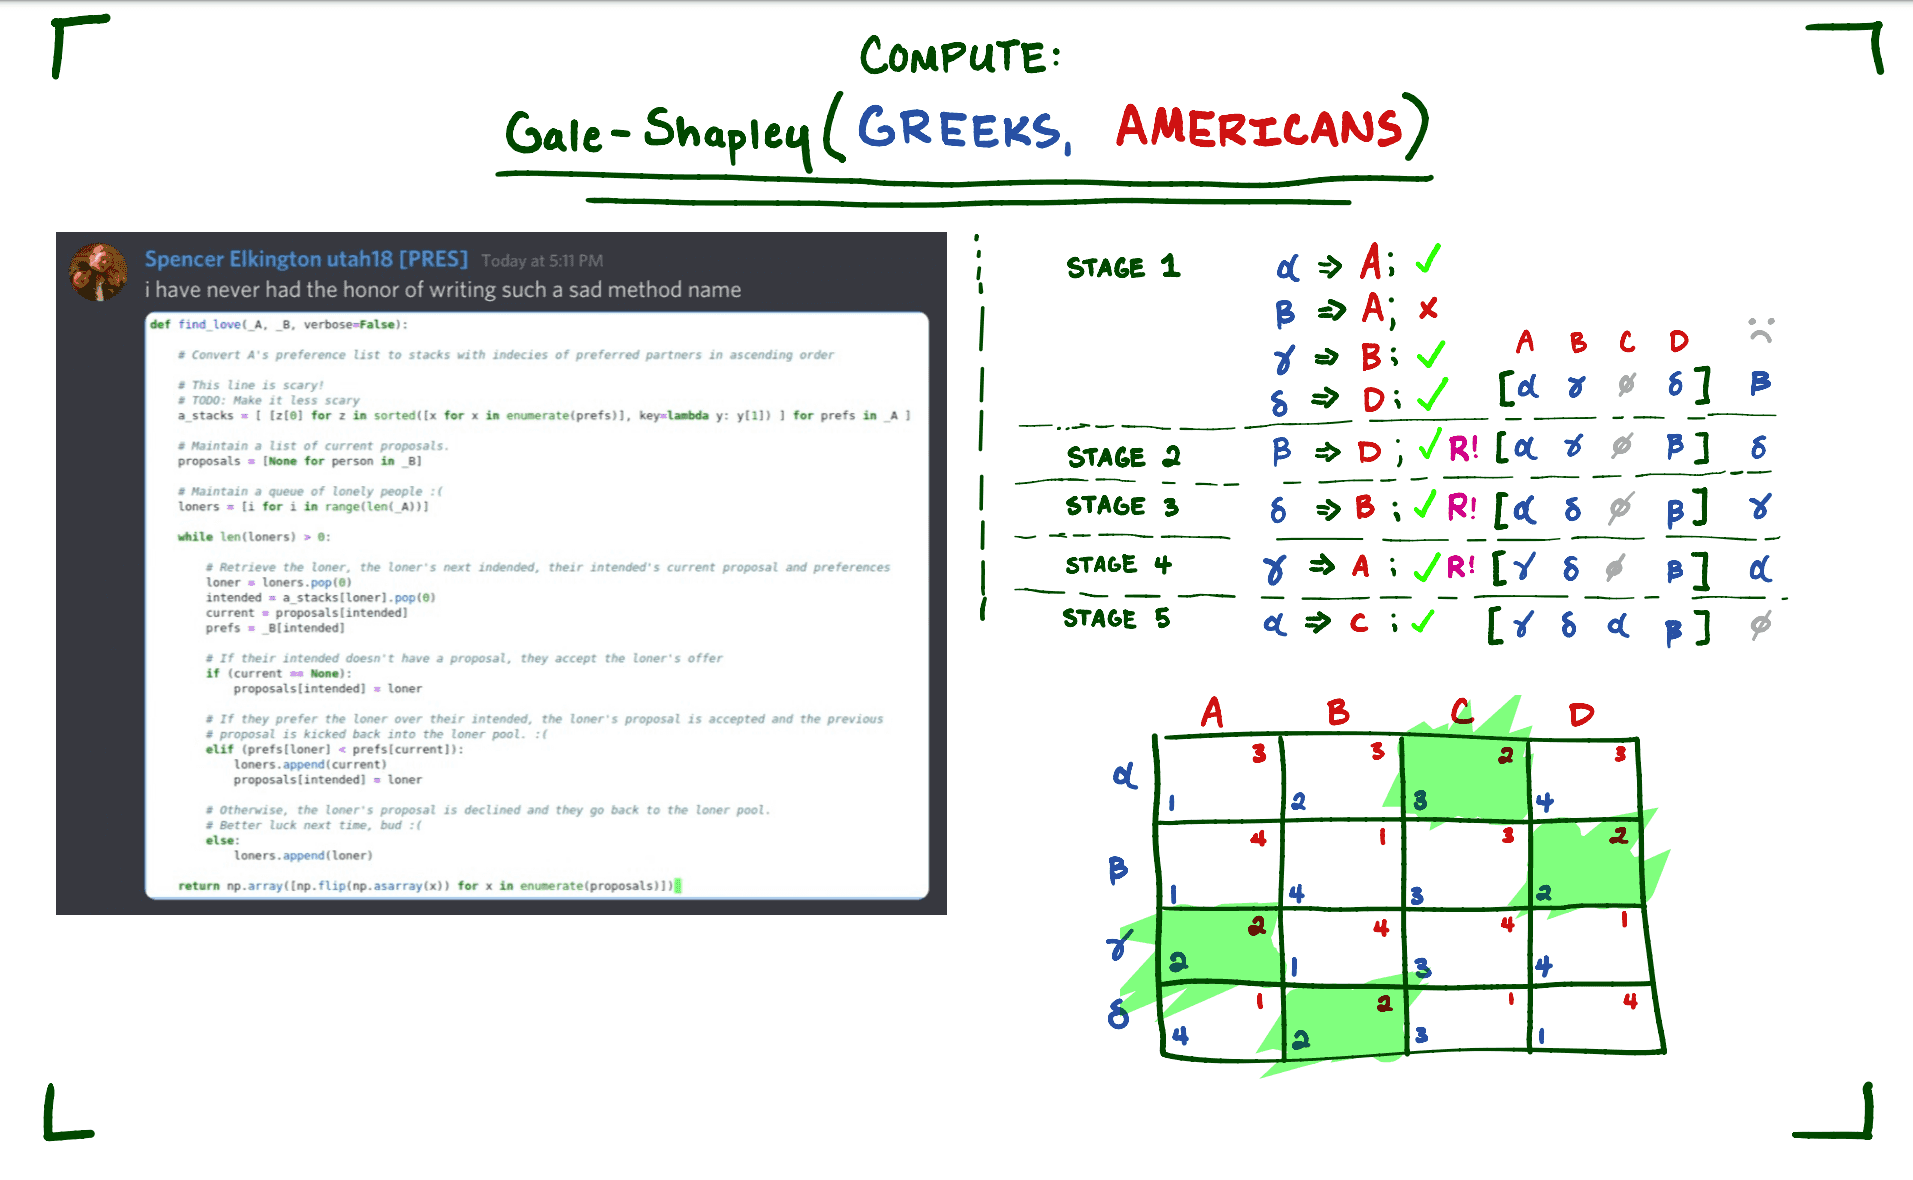 COMPUTE:
Gale-Shapley(GREEKS, AMERICANS)
Spencer Elkington utah18 [PRES] Today at 5:11 PM
i have never had the honor of writing such a sad method name
def find_love(_A, _B, verbose=False):
# Convert A's preference list to stacks with indecies of preferred partners in ascending order
# This line is scary!
# TODO: Make it less scary
a_stacks = [ [z[0] for z in sorted([x for x in enumerate(prefs)], key=lambda y: y[1]) ] for prefs in _A ]
# Maintain a list of current proposals.
proposals = [None for person in _B]
# Maintain a queue of lonely people :(
loners = [i for i in range(len(_A))]
while len(loners) > 0:
# Retrieve the loner, the loner's next indended, their intended's current proposal and preferences
loner = loners.pop(0)
intended = a_stacks[loner].pop(0)
current = proposals[intended]
prefs = _B[intended]
# If their intended doesn't have a proposal, they accept the loner's offer
if (current == None):
proposals[intended] = loner
# If they prefer the loner over their intended, the loner's proposal is accepted and the previous
# proposal is kicked back into the loner pool. :(
elif (prefs[loner] < prefs[current]):
loners.append(current)
proposals[intended] = loner
# Otherwise, the loner's proposal is declined and they go back to the loner pool.
# Better luck next time, bud :(
else:
loners.append(loner)
return np.array([np.flip(np.asarray(x)) for x in enumerate(proposals)])
STAGE 1 α ⇒ A; ✓
β ⇒ A; ×
γ ⇒ B; ✓
A B C D :(
δ ⇒ D; ✓ [α γ ∅ δ] β
STAGE 2 β ⇒ D; ✓ R! [α γ ∅ β] δ
STAGE 3 δ ⇒ B; ✓ R! [α δ ∅ β] γ
STAGE 4 γ ⇒ A; ✓ R! [γ δ ∅ β] α
STAGE 5 α ⇒ C; ✓ [γ δ α β] ∅
A B C D
3 3 2 3
α
1 2 3 4
4 1 3 2
β
1 4 3 2
2 4 4 1
γ
2 1 3 4
1 2 1 4
δ
4 2 3 1